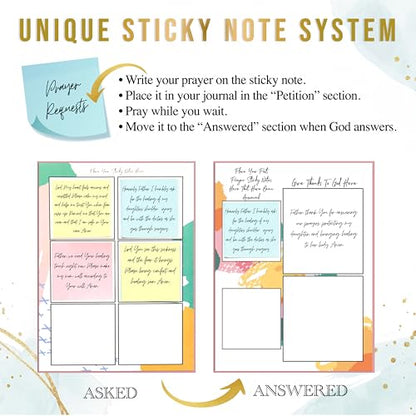 UNIQUE STICKY NOTE SYSTEM
Prayer
Requests
• Write your prayer on the sticky note.
• Place it in your journal in the “Petition” section.
• Pray while you wait.
• Move it to the “Answered” section when God answers.
Place Your Sticky Notes Here
Heavenly Father, I humbly ask
for the healing of my
daughters shoulder injury
and be with the doctors as she
goes through surgery.
Father, we need Your healing
touch right now. Please make
my mom well according to
Your will. Amen.
Lord You see this sickness
and the fear it brings.
Please bring comfort and
healing soon. Amen.
Place Your Past
Prayer Sticky Notes
Here That Have Been
Answered
Heavenly Father, I humbly ask
for the healing of my
daughters shoulder injury
and be with the doctors as she
goes through surgery.
Give Thanks To God Here
Father, thank You for answering
our prayers protecting my
daughter, and bringing healing
to her body. Amen.
ASKED
ANSWERED